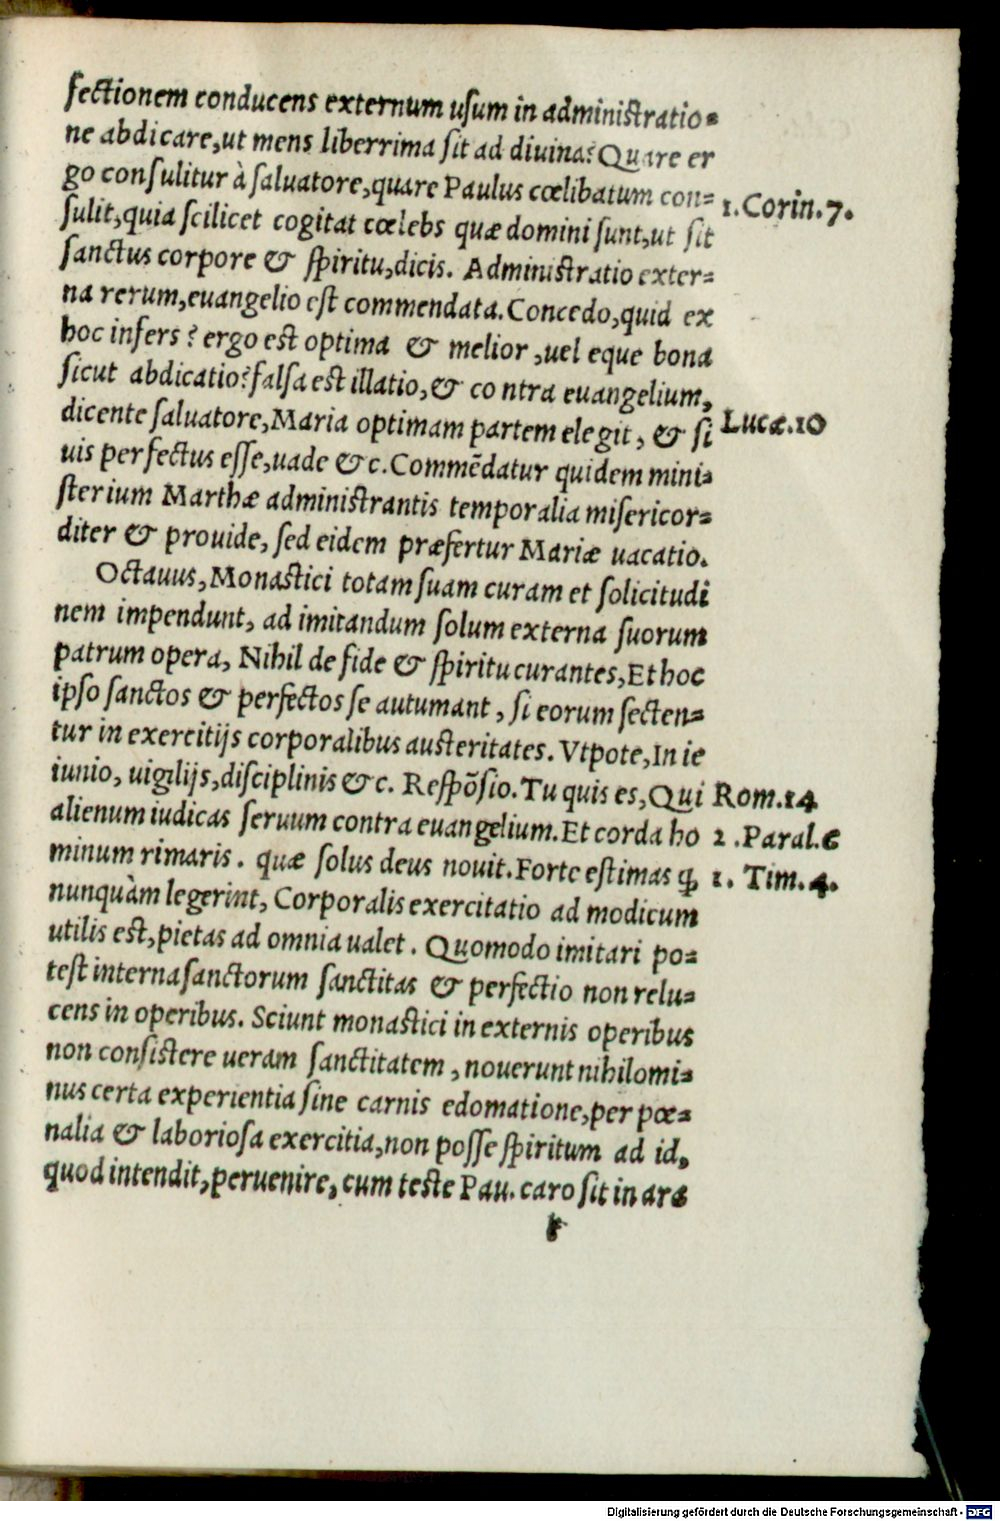 fectionem conducens externum uſum in adminiſtratio⸗
ne abdicare,ut mens liberrima ſit ad diuina?Quare er
go conſulitur à ſaluatore,quare Paulus cœlibatum con⸗
1.Corin.7.
ſulit,quia ſcilicet cogitat cœlebs quæ domini ſunt,ut ſit
ſanctus corpore & ſpiritu,dicis. Adminiſtratio exter⸗
na rerum,euangelio eſt commendata.Concedo,quid ex
hoc infers ? ergo eſt optima & melior ,uel eque bona
ſicut abdicatio?falſa eſt illatio,& co ntra euangelium,
dicente ſaluatore,Maria optimam partem elegit, & ſi
Lucæ.10
uis perfectus eſſe,uade &c.Commẽdatur quidem mini⸗
ſterium Marthæ adminiſtrantis temporalia miſericor⸗
diter & prouide, ſed eidem præfertur Mariæ uacatio.
Octauus,Monaſtici totam ſuam curam et ſolicitudi
nem impendunt, ad imitandum ſolum externa ſuorum
patrum opera, Nihil de fide & ſpiritu curantes,Et hoc
ipſo ſanctos & perfectos ſe autumant , ſi eorum ſecten⸗
tur in exercitijs corporalibus auſteritates. Vtpote,In ie
iunio, uigilijs,diſciplinis &c. Reſpõſio.Tu quis es,Qui
Rom.14
alienum iudicas ſeruum contra euangelium.Et corda ho
2 .Paral.6
minum rimaris. quæ ſolus deus nouit.Forte eſtimas ꝙ
1. Tim.4.
nunquàm legerint, Corporalis exercitatio ad modicum
utilis eſt,pietas ad omnia ualet . Quomodo imitari po⸗
teſt interna ſanctorum ſanctitas & perfectio non relu⸗
cens in operibus. Sciunt monaſtici in externis operibus
non conſiſtere ueram ſanctitatem , nouerunt nihilomi⸗
nus certa experientia ſine carnis edomatione,per pœ⸗
nalia & laborioſa exercitia,non poſſe ſpiritum ad id,
quod intendit,peruenire, cum teſte Pau. caro ſit in arꝫ
Digitalisierung gefördert durch die Deutsche Forschungsgemeinschaft - DFG